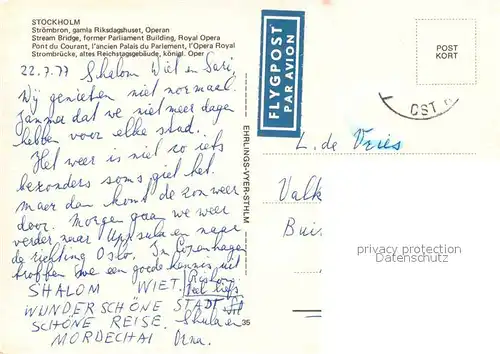 STOCKHOLM
Strömbron, gamla Riksdagshuset, Operan
Stream Bridge, former Parliament Building, Royal Opera
Pont du Courant, l'ancien Palais du Parlement, l'Opera Royal
Strombrücke, altes Reichstagsgebäude, königl. Oper
FLYGPOST
PAR AVION
POST
KORT
CST
22.7.77 Shalom Wiet en Sari,
Wij genieten niet normaal.
Jammer dat we niet meer dagen
hebben voor elke stad.
Het weer is niet zo iets
bezonders soms giet het.
maar dan komt de zon weer
door. Morgen gaan we weer
verder naar Uppsula en naar
de richting Oslo. In Copenhagen
troffen we een goede kennis uit
SHALOM WIET.
veel liefs
WUNDERSCHÖNE STADT
SCHÖNE REISE. Shula en
MORDECHAI Orna.
EHRLINGS-VYER-STHLM
35
L. de Vries
Valk
Buis
privacy protection
Datenschutz